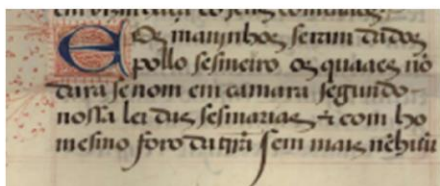 E Os maninhos serem dados
pollo sesmeiro os quaaes nõ
dara se nom em camara segundo
nossa lei das sesmarias & com ho
mesmo foro da trr̃a sem mais nẽhũũ